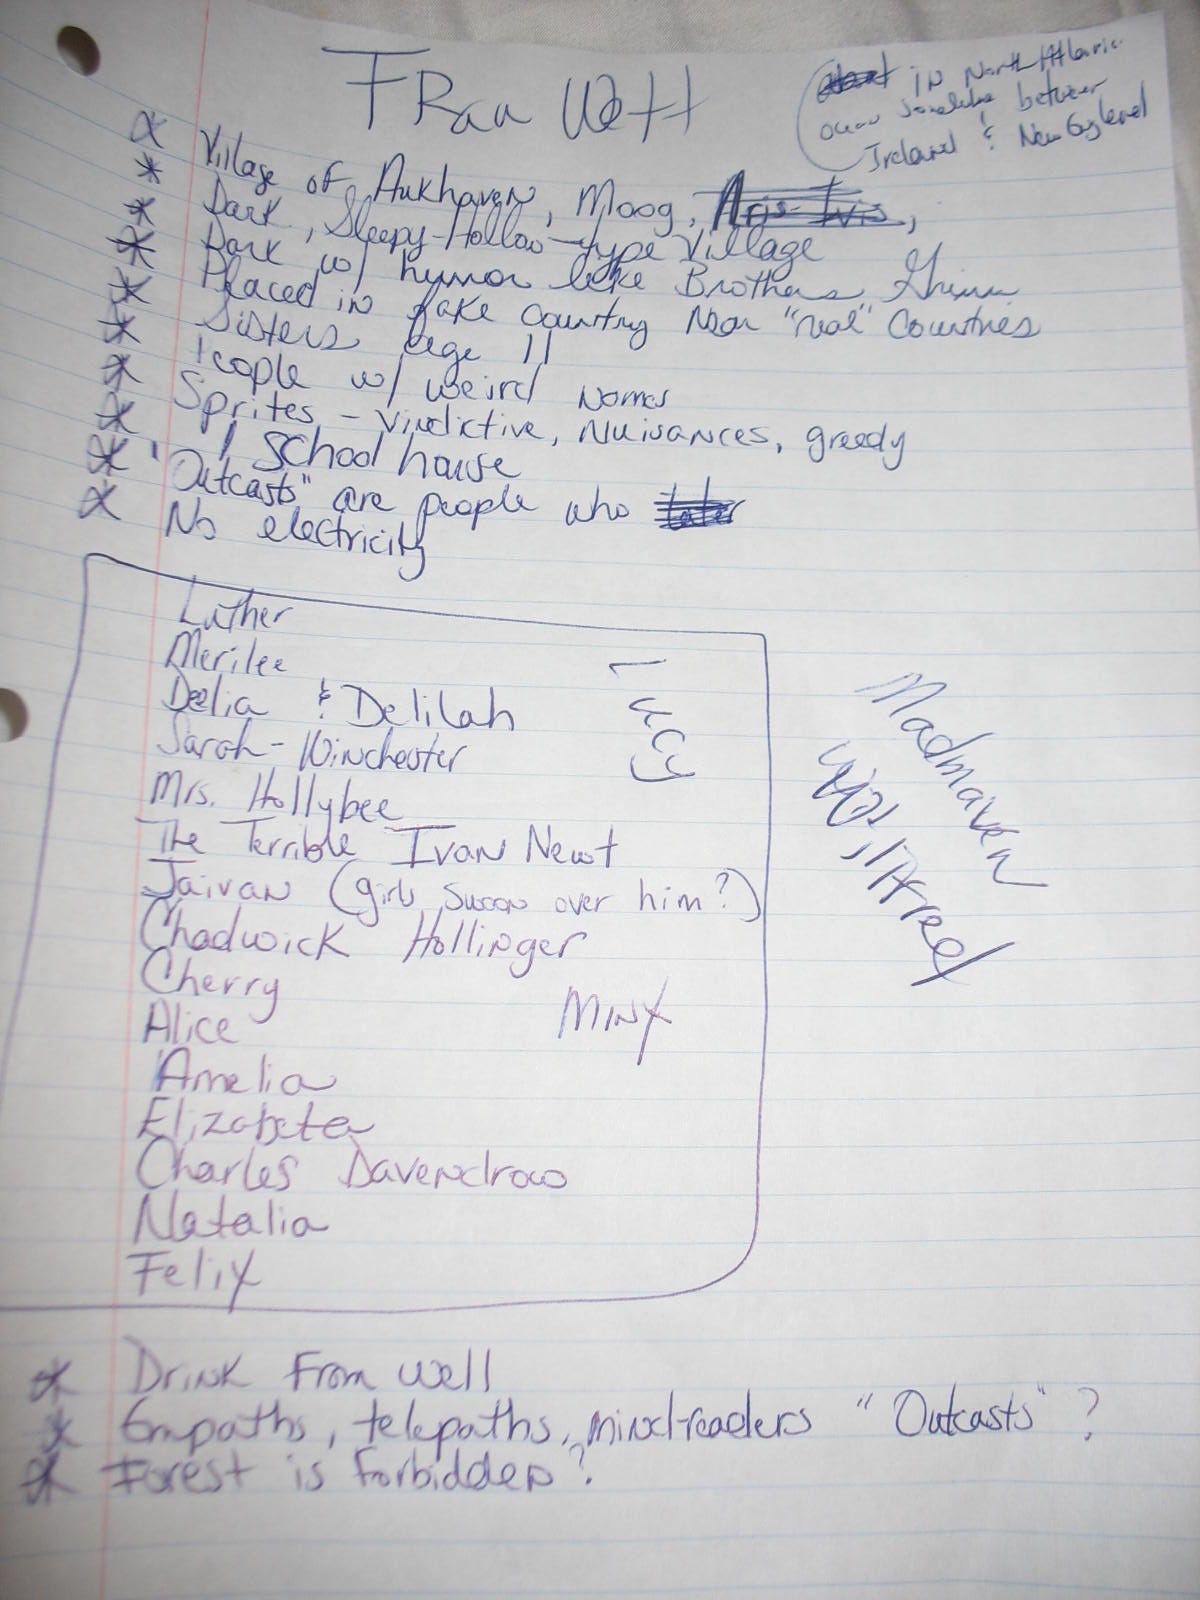 FRau Wett
in North Atlantic
ocean somewhere between
Ireland & New England
* Village of Aukhaven, Moog,
* Dark, Sleepy-Hollow-type Village
* Dark w/ humor like Brothers Grimm
* Placed in fake country Near "real" Countries
* Sisters age 11
* People w/ weird Names
* Sprites - Vindictive, Nuisances, greedy
* 1 School house
* "Outcasts" are people who
* No electricity
Luther
Merilee
Delia & Delilah
Lucy
Sarah-Winchester
Mrs. Hollybee
The Terrible Ivan Newt
Jaivan (girls swoon over him?)
Chadwick Hollinger
Cherry
Alice
Minx
Amelia
Elizabeta
Charles Davendrow
Natalia
Felix
Madmaiven
* Drink From Well
* Empaths, telepaths, mind-readers "Outcasts"?
* Forest is Forbidden?